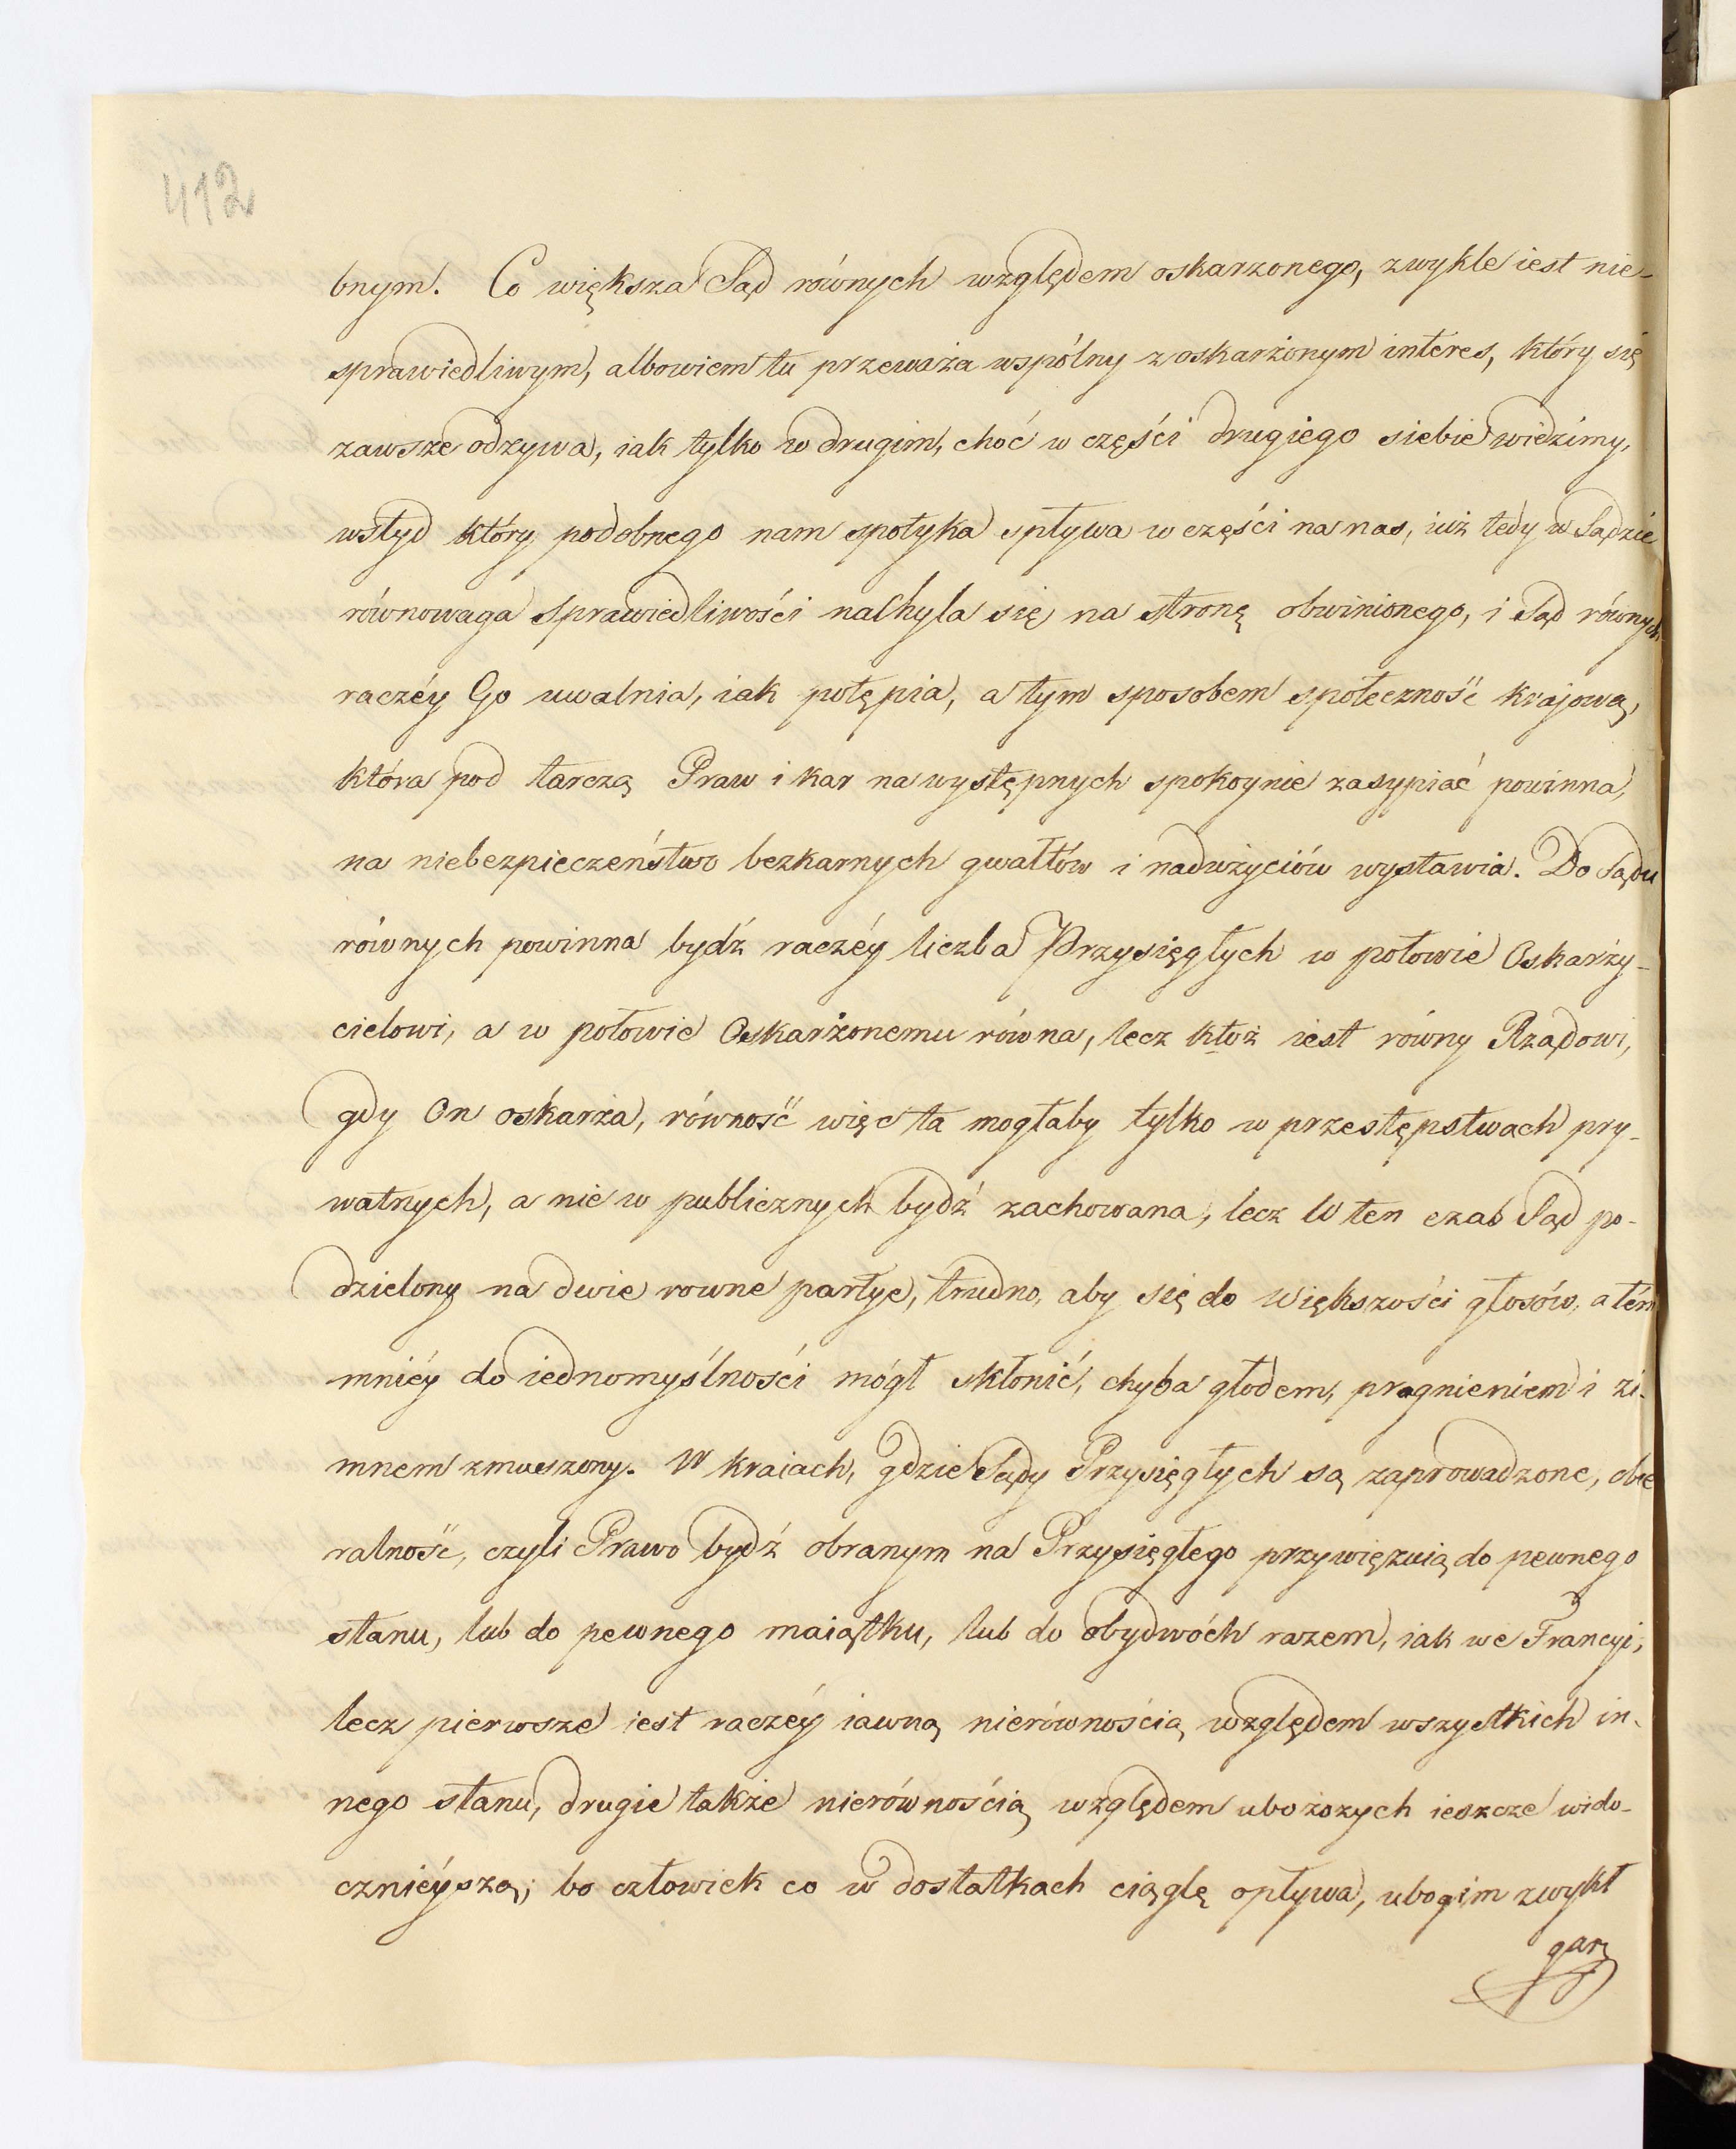 412
bnym. Co większa Sąd równych względem oskarzonego, zwykle iest nie-
sprawiedliwym, albowiem tu przeważa wspólny z oskarżonym interes, który się
zawsze odzywa, iak tylko w drugim, choć w części drugiego siebie widzimy,
wstyd który podobnego nam spotyka spływa w części na nas, iuż tedy w Sądzie
równowaga sprawiedliwości nachyla się na stronę obwinionego, i Sąd równych
raczéy Go uwalnia, iak potępia, a tym sposobem społeczność krajową,
która pod tarczą Praw i kar na występnych spokoynie zasypiać powinna,
na niebezpieczeństwo bezkarnych gwałtów i nadużyciów wystawia. Do Sądu
równych powinna bydź raczéy liczba Przysięgłych w połowie Oskarży-
cielowi, a w połowie Oskarżonemu równa, lecz któż iest równy Rządowi,
gdy On oskarża, równość więc ta mogłaby tylko w przestępstwach pry-
watnych, a nie w publicznych bydź zachowana, lecz W ten czas Sąd po-
dzielony na dwie rowne partye, trudno, aby się do większości głosów, a tém
mniéy do iednomyślności mógł skłonić, chyba głodem, pragnieniem i zi-
mnem zmuszony. W kraiach, gdzie Sądy Przysięgłych są zaprowadzone, obie
ralność, czyli Prawo bydź obranym na Przysięgłego przywięzuią do pewnego
stanu, lub do pewnego maiątku, lub do obydwóch razem, iak we Francyi,
lecz pierwsze iest raczéy iawną nierównością względem wszystkich in-
nego stanu, drugie także nierównością względem uboższych ieszcze wido-
cznieyszą; bo człowiek co w dostatkach ciąglę opływa, ubogim zwykł
gar